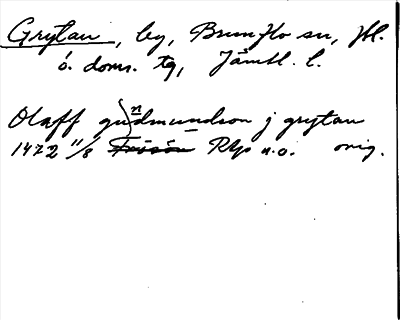 Grytan, by, Brunflo sn, Jtl.
ö. doms. tg, Jämtl. l.
Olaff gudmundson j grytan
n
1472 11/8 Frösön RAp n.o. orig.